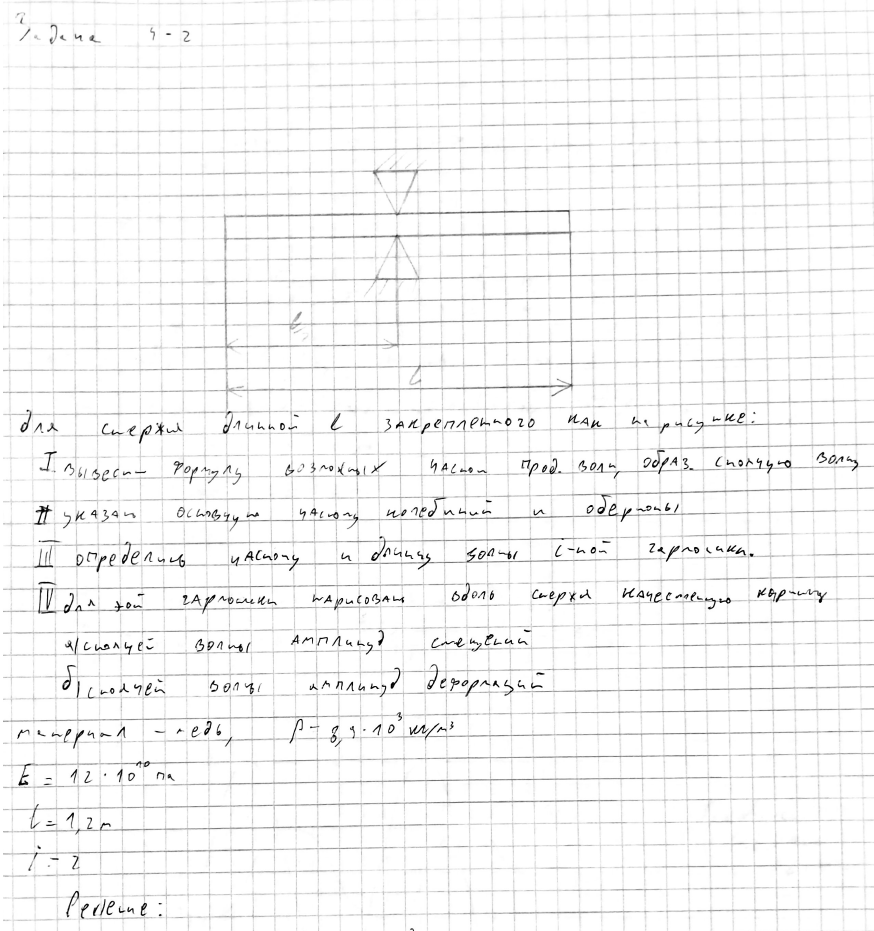 Задача 4-2
l
l
Для стержня длинной l закрепленного как на рисунке:
I вывести формулу возможных частот прод. волн, образ. стоячую волну
II указать основную частоту колебиний и обертоны
III определить частоту и длину волны i-той гармоники.
IV для этой гармоники нарисовать вдоль стержня качественную картину
а) стоячей волны амплитуд смещений
б) стоячей волны амплитуд деформаций
материал - медь, ρ - 8,9·10³ кг/м³
E = 12·10¹⁰ па
l = 1,2 м
i - 2
Решение: